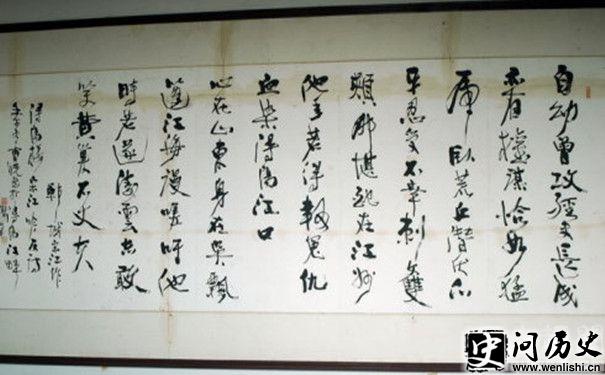 自幼曾攻經史長成
亦有權謀恰如猛
虎臥荒丘潛伏爪
牙忍受不幸刺雙
頰那堪配在江州
他年若得報冤仇
血染潯陽江口
心在山東身在吳飄
蓬江海謾嗟吁他
時若遂凌雲志敢
笑黃巢不丈夫
鄆城宋江作
潯陽樓宋江吟反詩
史 问历史
www.wenlishi.cn